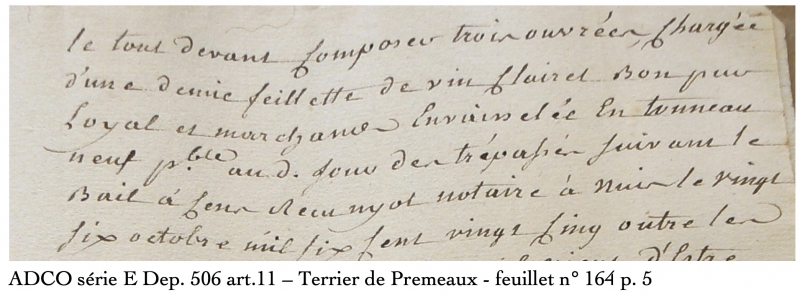 le tout devant Composer trois ouvrées, Chargée
d'une demie feillette de vin Clairet Bon pur
Loyal et marchand Envaisselée En tonneau
neuf p.ble aud. Jour des trépassés suivant le
Bail à Cens Recu nyot notaire à nuis le vingt
six octobre mil six Cent vingt Cinq outre les
d'Estre
ADCO série E Dep. 506 art.11 – Terrier de Premeaux - feuillet n° 164 p. 5